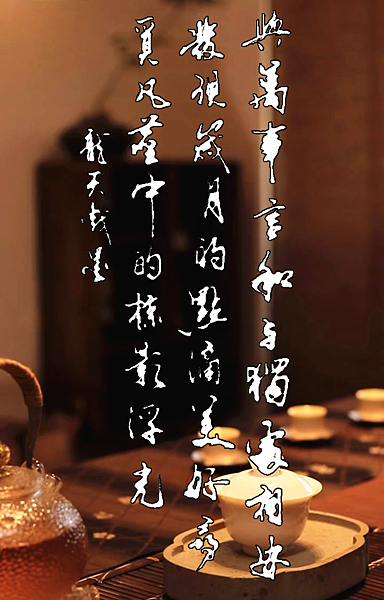 與萬事言和与獨處相安
發現歲月的點滴美好尋
覓凡塵中的掠影浮光
龍天戲墨